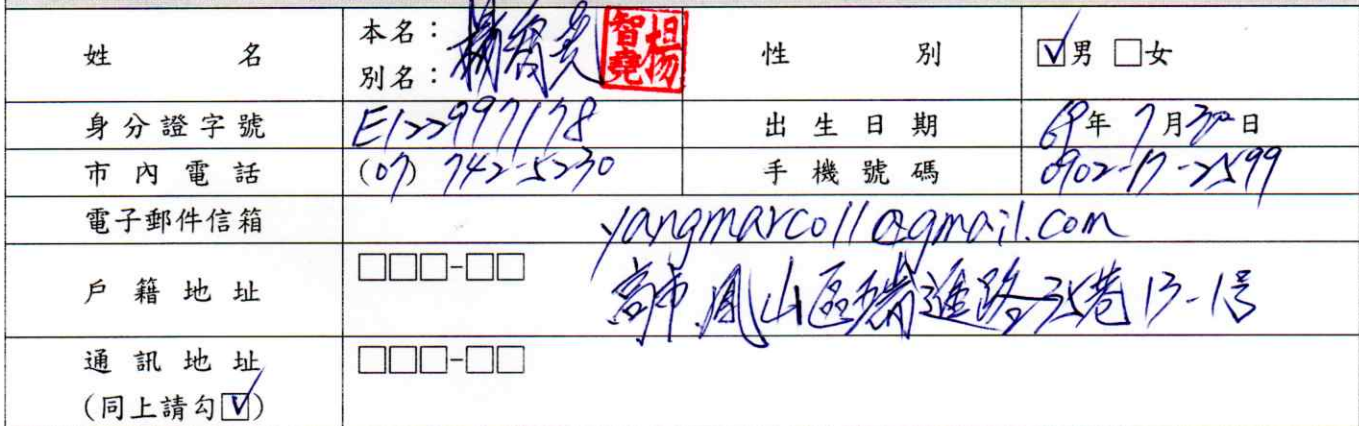 姓 名 本名：楊智堯 智堯楊 性 別 ☑男 □女
別名：
身分證字號 E122997178 出生日期 69年 7月30日
市內電話 (07) 742-5230 手機號碼 0902-17-2599
電子郵件信箱 yangmarco11@gmail.com
戶籍地址 □□□-□□
高市鳳山區瑞進路35巷13-1号
通訊地址 □□□-□□
(同上請勾☑)